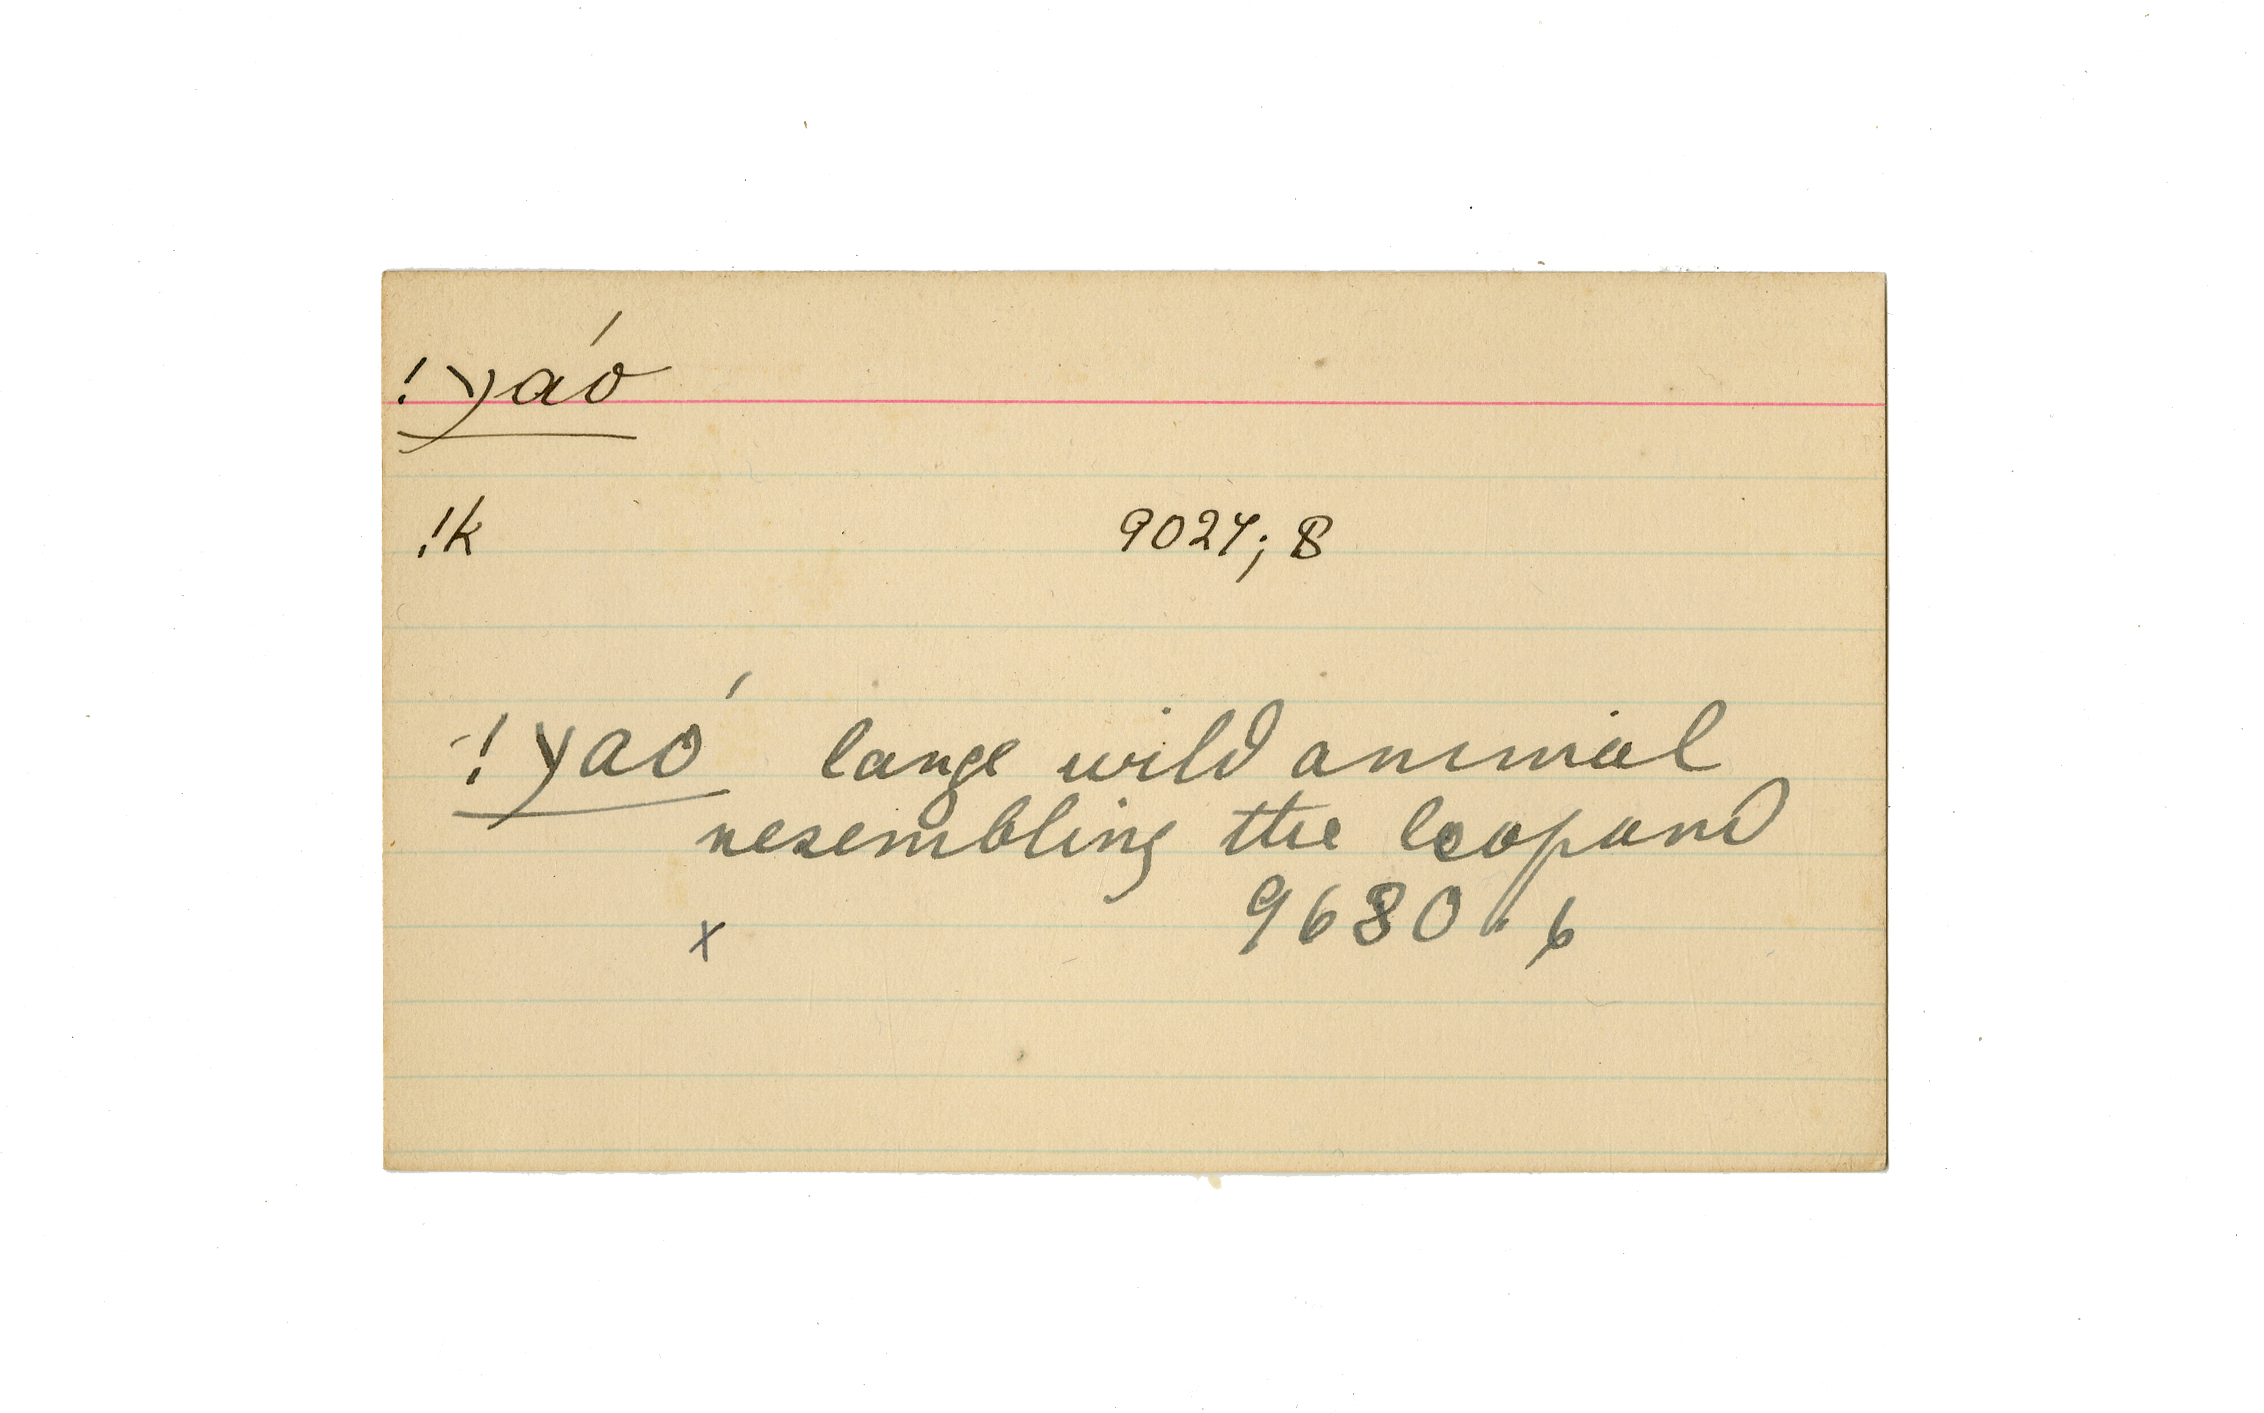 !yaó
!k 9027; 8
!yaó large wild animal
resembling the leopard
x 9680. 6